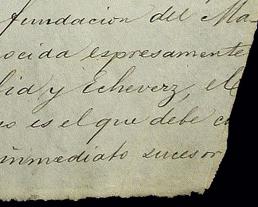 fundación del Ma-
ocida espresamente
y Echeverz, el
es el que debe
inmediato sucesor